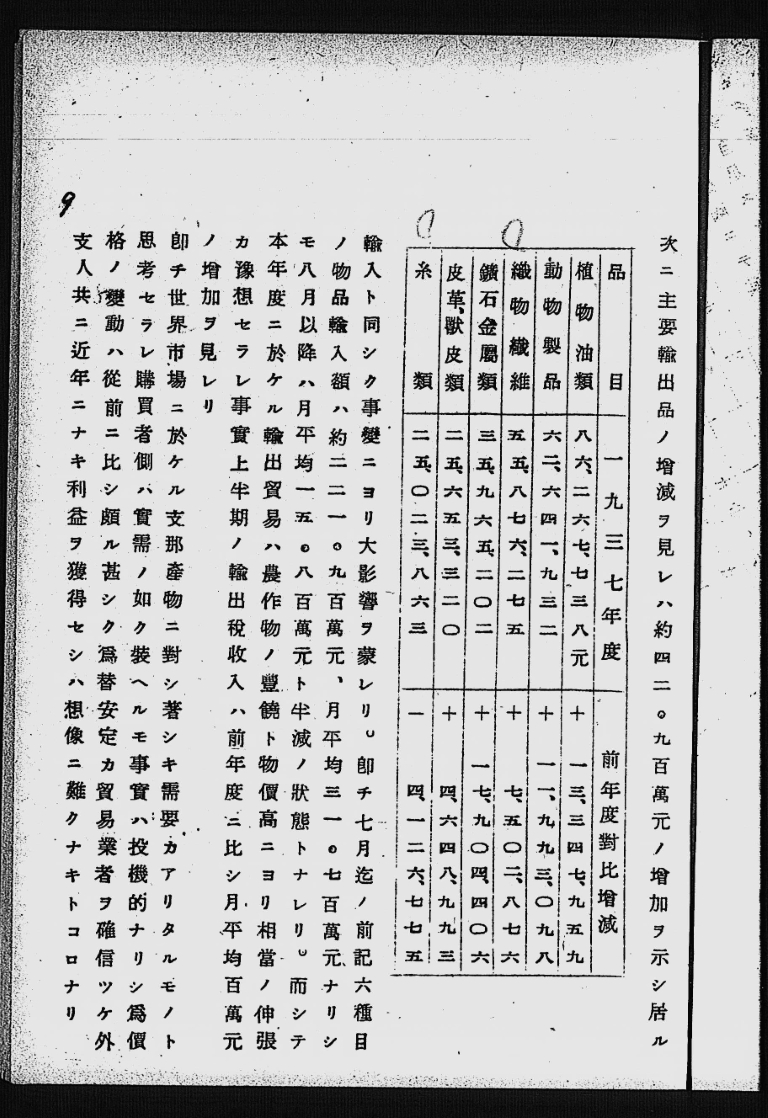 次ニ主要輸出品ノ增減ヲ見レハ約四二。九百萬元ノ增加ヲ示シ居ル
品目 一九三七年度 前年度對比增減
植物油類 八六、二六七、七三八元 十 一三、三四七、九五九
動物製品 六二、六四一、九三二 十 一一、九九三、〇九八
織物纖維 五五、八七六、二七五 十 七、五〇二、八七六
鑛石金屬類 三五、九六五、二〇二 十 一七、九〇四、四〇六
皮革、獸皮類 二五、六五三、三二〇 十 四、六四八、九九三
糸類 二五、〇二三、八六三 一 四、一二六、七七五
輸入ト同シク事變ニヨリ大影響ヲ蒙レリ。卽チ七月迄ノ前記六種目
ノ物品輸入額ハ約二二一。九百萬元、月平均三一。七百萬元ナリシ
モ八月以降ハ月平均一五。八百萬元ト半減ノ狀態トナレリ。而シテ
本年度ニ於ケル輸出貿易ハ農作物ノ豐饒ト物價高ニヨリ相當ノ伸張
カ豫想セラレ事實上半期ノ輸出稅收入ハ前年度ニ比シ月平均百萬元
ノ增加ヲ見レリ
卽チ世界市場ニ於ケル支那產物ニ對シ著シキ需要カアリタルモノト
思考セラレ購買者側ハ實需ノ如ク裝ヘルモ事實ハ投機的ナリシ爲價
格ノ變動ハ從前ニ比シ頗ル甚シク爲替安定カ貿易業者ヲ確信ツケ外
支人共ニ近年ニナキ利益ヲ獲得セシハ想像ニ難クナキトコロナリ
9